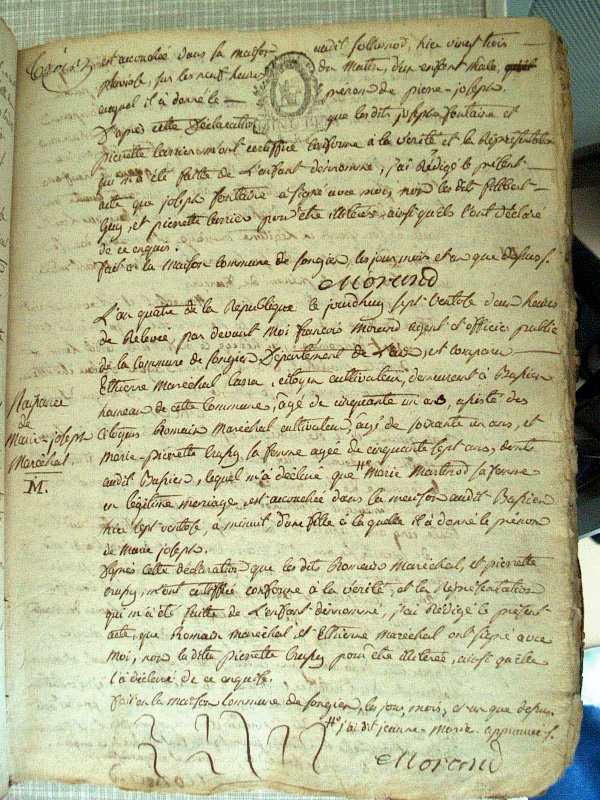 est accouchée dans la maison audit sollonod, hier vingt trois
pluviose, sur les neuf heures du matin, d'un enfant male,
auquel il a donné le prenom de pierre-joseph.
D'après cette Déclaration que lesdits joseph fontaine et
pierrette carrier m'ont certiffié conforme à la verité et la Représentation
qui m'a été faitte de L'enfant denommé, j'ai Rédigé le présent
acte que joseph fontaine a signé avec moi, non les dits
Guy, et pierrette carrier pour être illitérés, ainsi qu'ils l'ont déclaré
de ce enquis.
fait en la Maison commune de songieu, les jour, mois et an que dessus f.
Morand
L'an quatre de la République le jourdhuy sept ventose deux heures
de Relevée, par devant Moi françois Morand agent et officier public
de la commune de songieu Département de l'ain, est comparu
Ethienne Maréchal citoyen cultivateur, demeurant à Bassieu
hameau de cette Commune, agé de cinquante un ans, assisté des
citoyens Romain Maréchal cultivateur, agé de soixante un ans, et
marie-pierrette crussy, la femme agée de cinquante sept ans, dudit
audit Bassieu, lequel m'a déclaré que #to Marie Martinod sa femme
en légitime mariage, est accouchée dans la maison audit Bassieu
hier sept ventose, à minuit, d'une fille à la quelle il à donné le prenom
de Marie joseph.
D'après cette déclaration que les dits Romain Maréchal, et pierrette
crussy, m'ont certiffiée conforme à la vérité, et la Représentation
qui m'a été faitte de L'enfant dénommé, j'ai Rédigé le présent
acte, que Romain maréchal et Ethienne Maréchal ont signé avec
Moi, non la ditte pierrette crussy pour être illiterée, ainsi qu'elle
l'a déclaré de ce enquise.
fait en la maison commune de songieu, les jour, mois, et an que dessus
#to j'ai dit jeanne marie approuvée f.
Morand
Naissance
de
Marie-joseph
Maréchal
M.